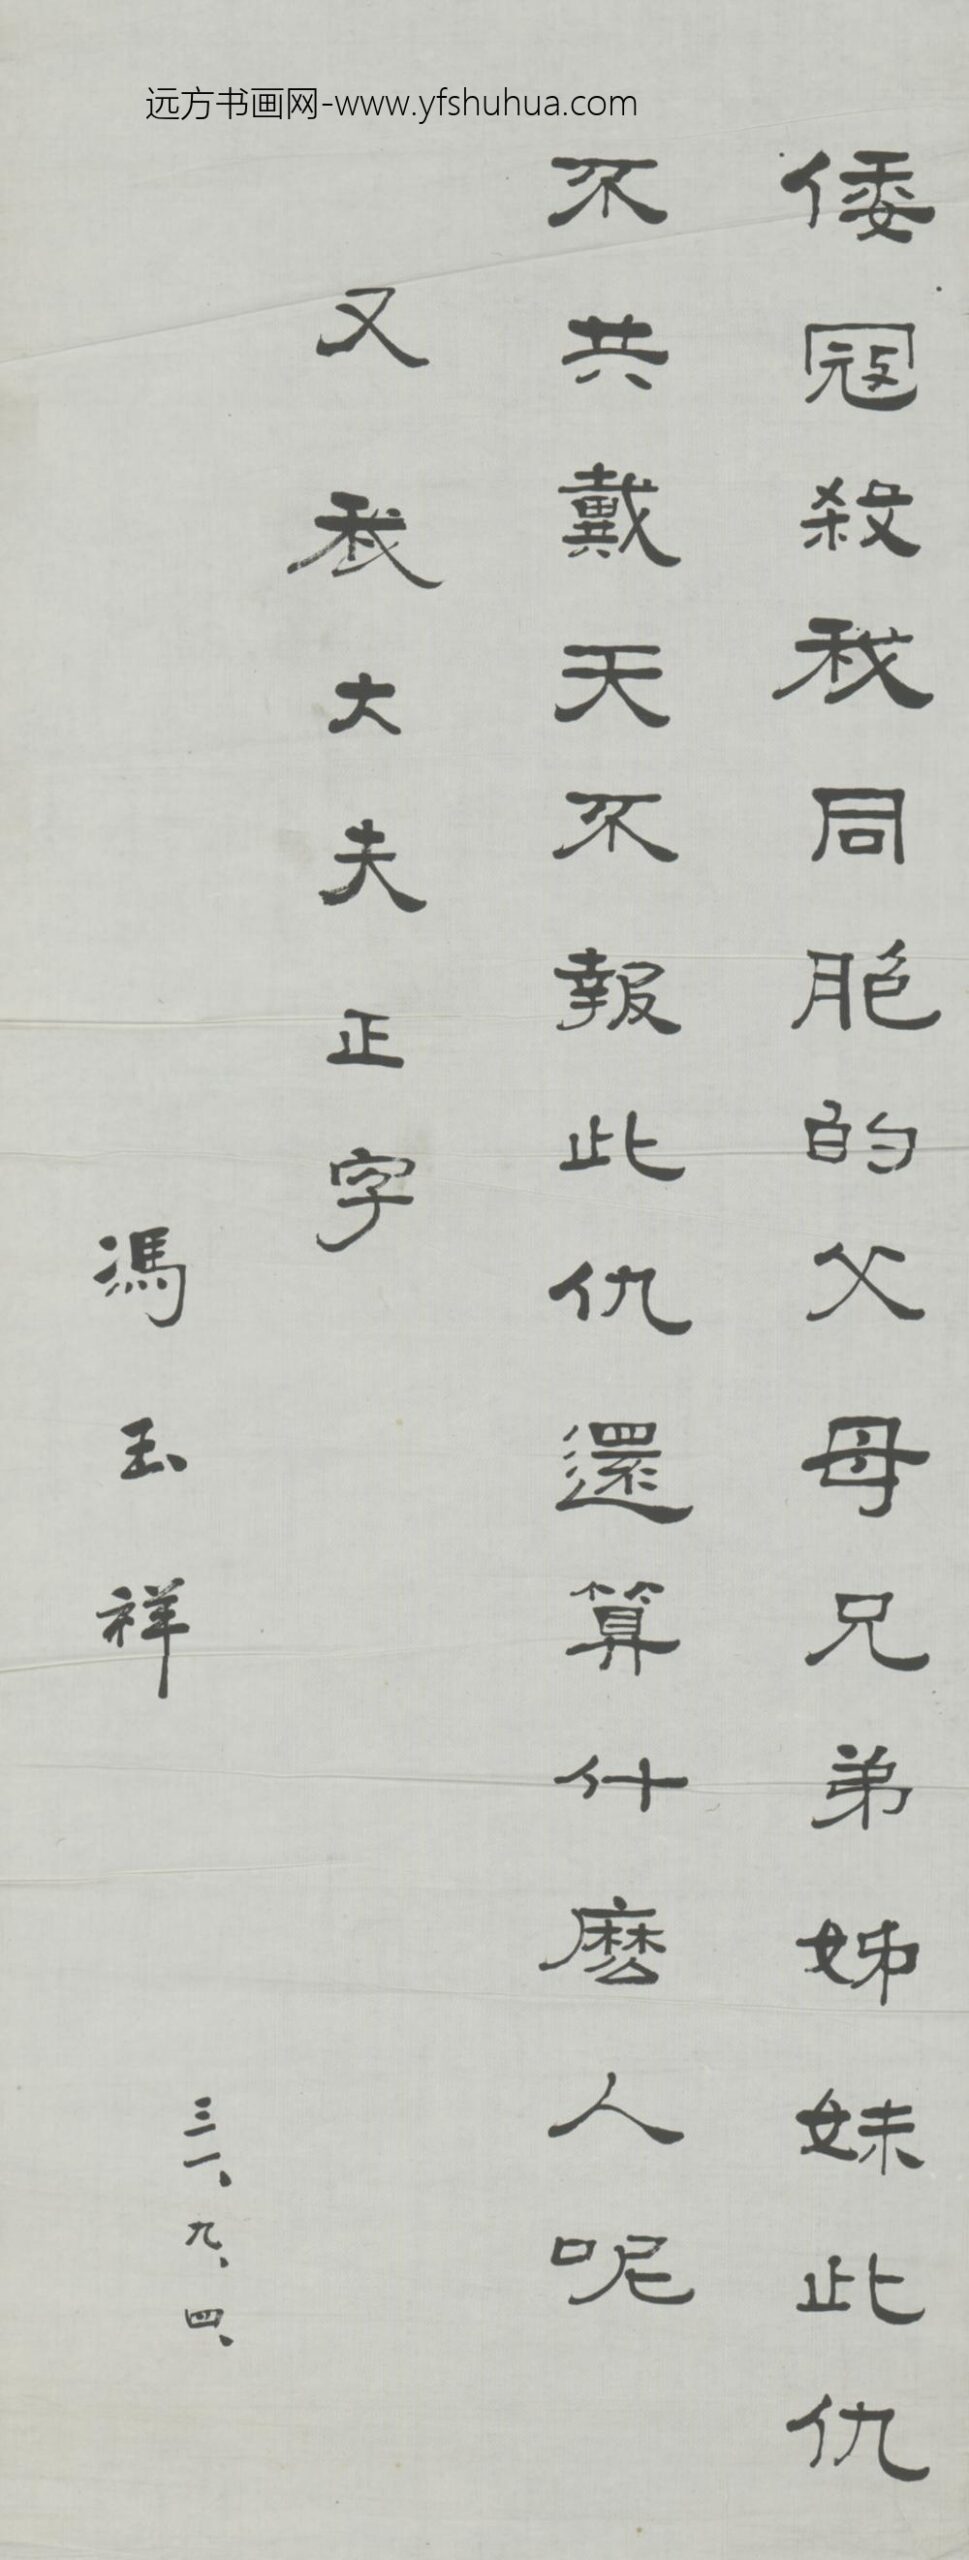 远方书画网-www.yfshuhua.com
倭冦殺我同胞的父母兄弟姊妹此仇
不共戴天不報此仇還算什麽人呢
又我大夫正字
馮玉祥
三一、九、四、